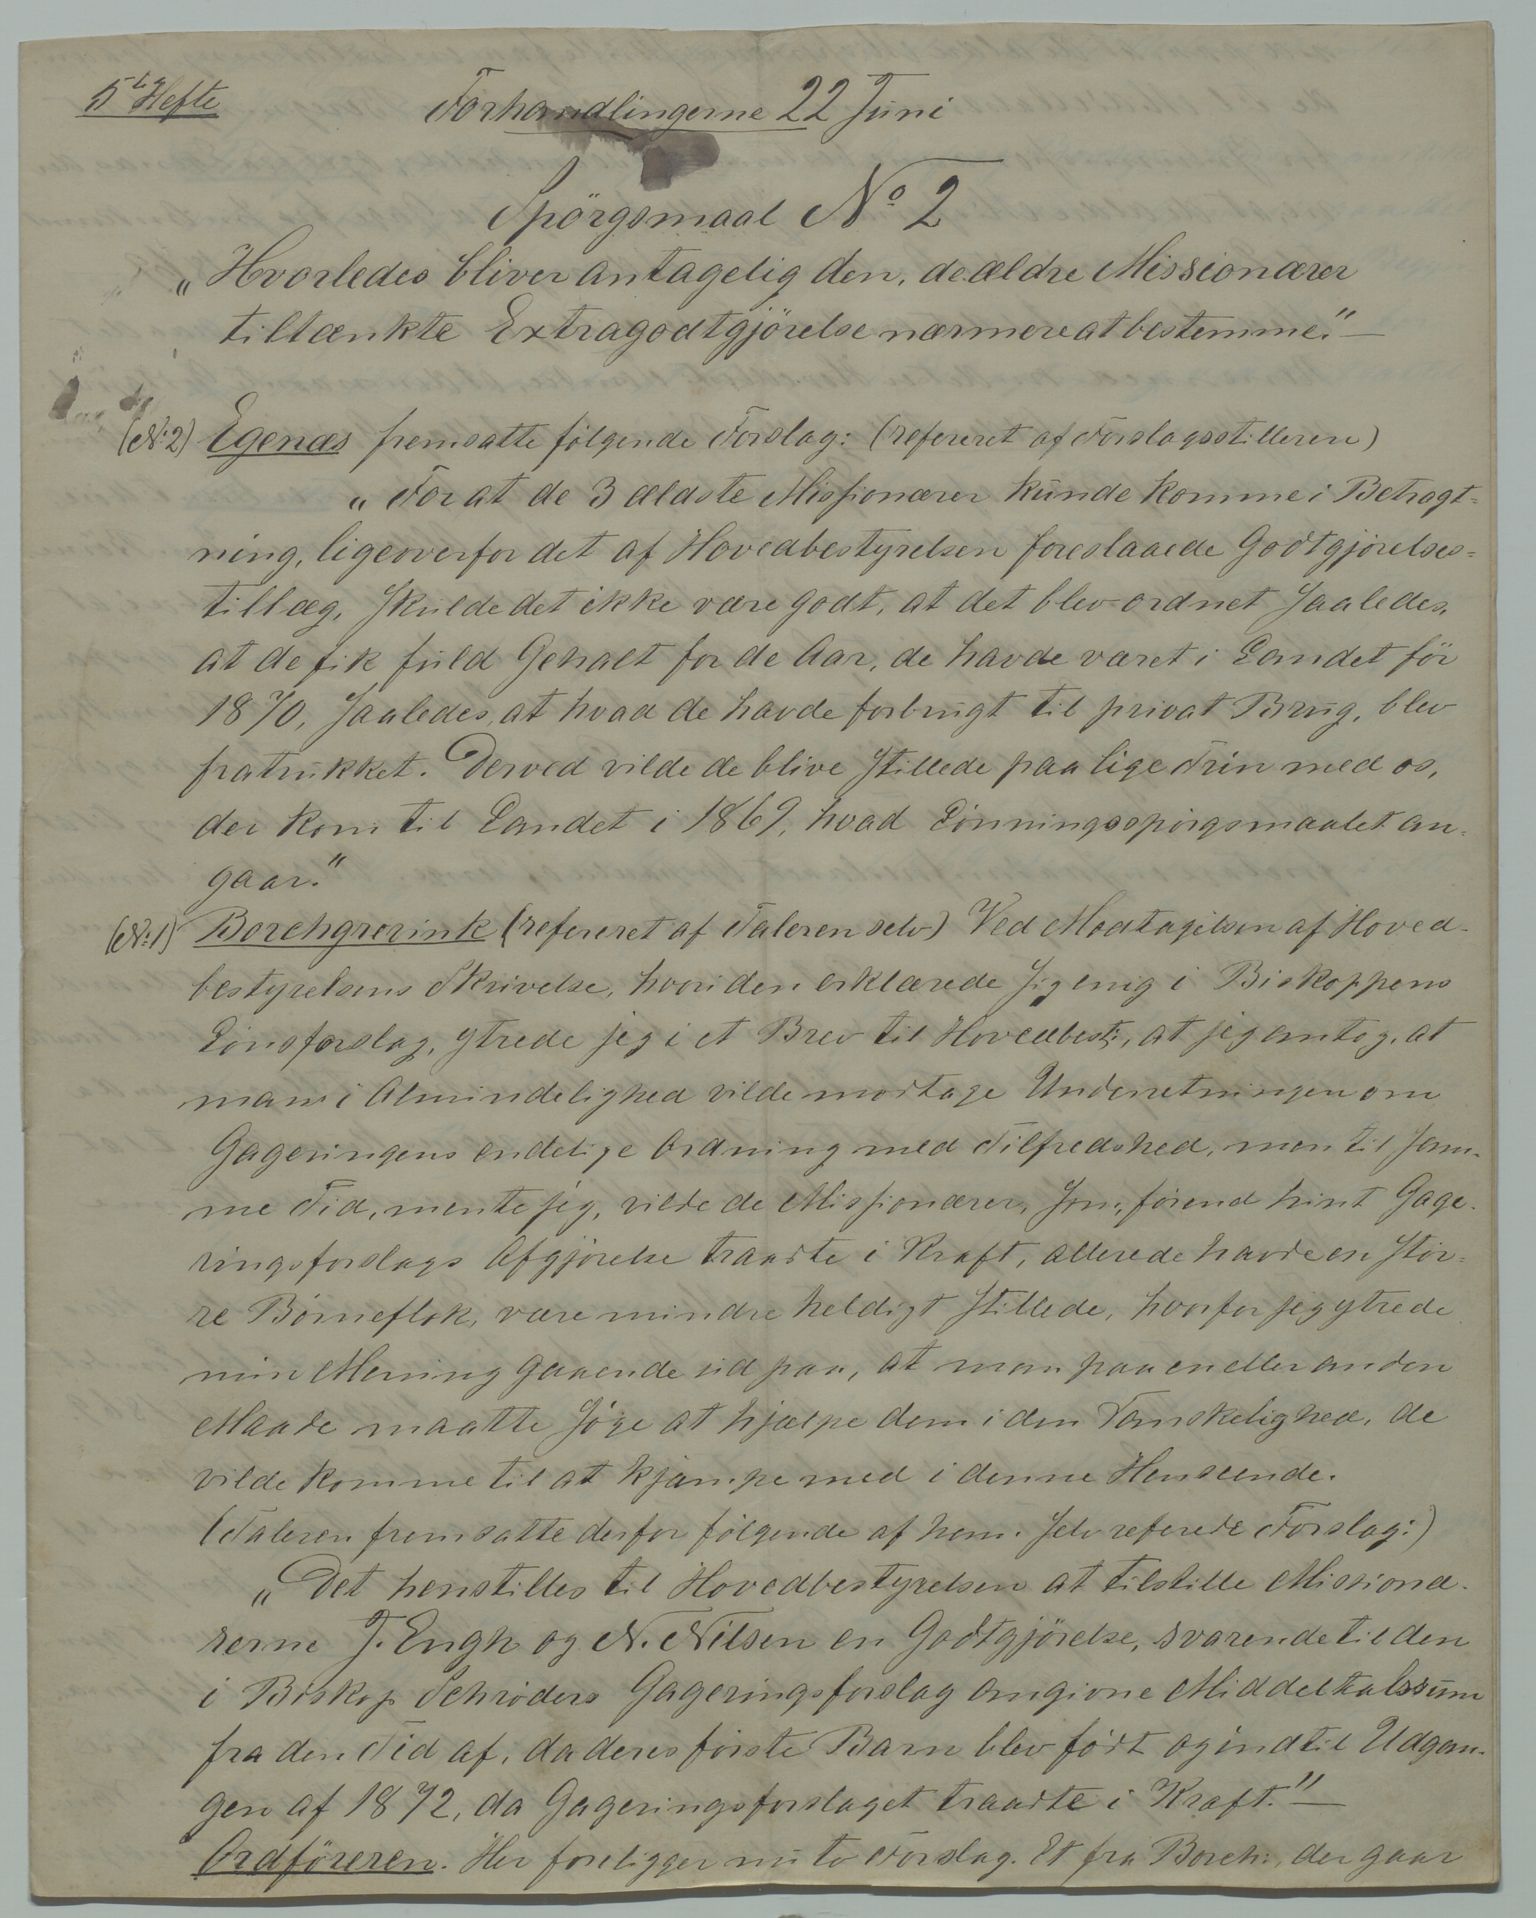 5te Hefte
Forhandlingerne 22 Juni
Spörgsmaal No 2
„Hvorledes bliver antagelig den, de ældre Missionærer
tiltænkte Extragodtgjörelse nærmere at bestemme."—
(No 2) Egenæs fremsatte følgende Forslag: (refereret af Forslagsstilleren)
„For at de 3 ældste Missionærer kunde komme i Betragt-
ning, ligeoverfor det af Hovedbestyrelsen foreslaaede Godtgjørelses-
tillæg, skulde det ikke være godt, at det blev ordnet saaledes,
at de fik fuld Gehalt for de Aar, de havde været i Landet för
1870, saaledes, at hvad de havde forbrugt til privat Brug, blev
fratrukket. Derved vilde de blive stillede paa lige Trin med os,
der kom til Landet i 1869, hvad Lønningsspørgsmaalet an-
gaar."
(No 1) Borchgrevink (refereret af Taleren selv) Ved Modtagelsen af Hoved-
bestyrelsens Skrivelse, hvori den erklærede sig enig i Biskoppens
Lønsforslag, ytrede jeg i et Brev til Hovedbest:, at jeg antog, at
man i Almindelighed vilde modtage Underretningen om
Gageringens endelige Ordning med Tilfredshed, men til sam-
me Tid, mente jeg, vilde de Missionærer, som, førend hint Gage-
ringsforslags Afgjørelse traadte i Kraft, allerede havde en stör-
re Børneflok, være mindre heldigt stillede, hvorfor jeg ytrede
min Mening gaaende ud paa, at man paa en eller anden
Maade maatte søge at hjælpe dem i den Vanskelighed, de
vilde komme til at kjæmpe med i denne Henseende.
(Taleren fremsatte derfor følgende af ham selv referede Forslag:)
„Det henstilles til Hovedbestyrelsen at tilstille Missionæ-
rerne J. Engh og N. Nilsen en Godtgjörelse, svarende til den
i Biskop Schrøders Gageringsforslag angivne Middeltalssum
fra den Tid af, da deres første Barn blev født og indtil Udgan-
gen af 1872, da Gageringsforslaget traadte i Kraft."—
Ordföreren. Her foreligger nu to Forslag. Et fra Borch:, der gaar